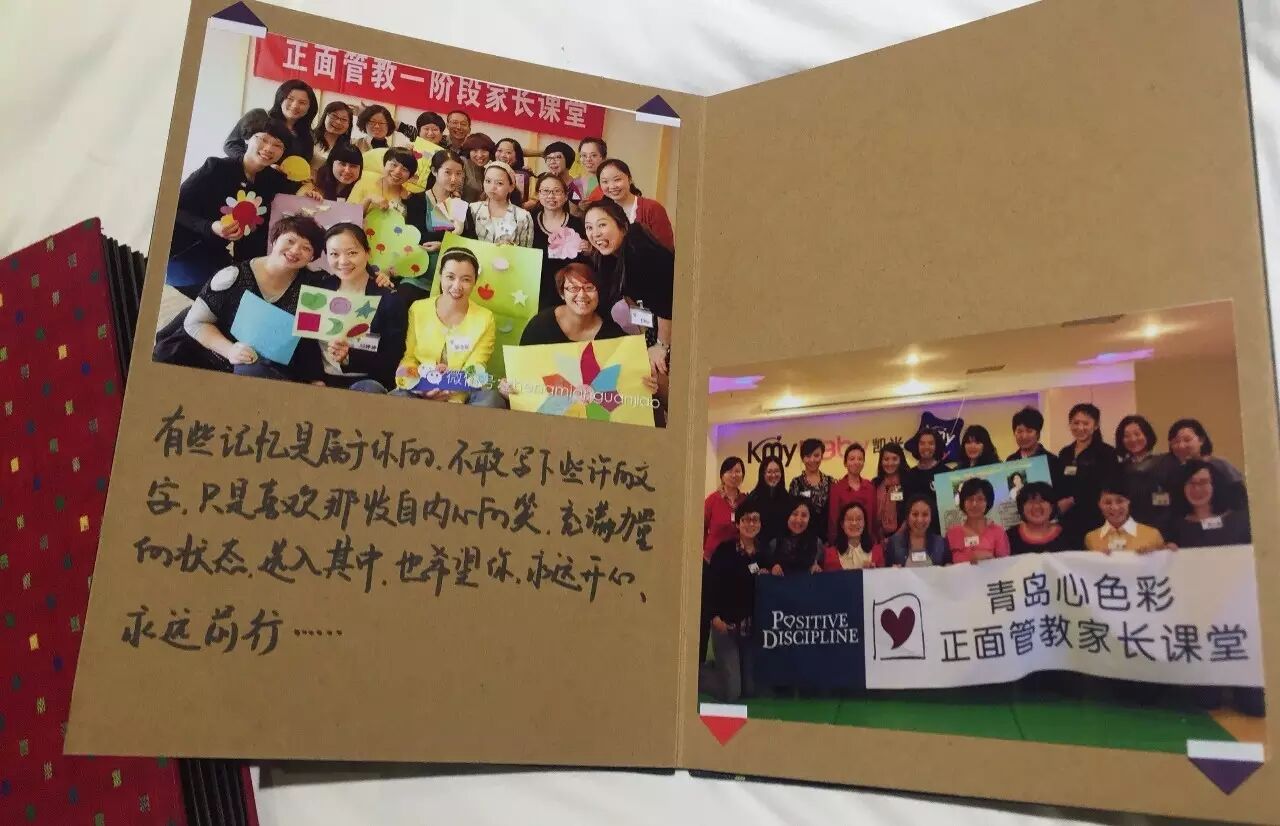 正面管教一阶段家长课堂
微信号:zhengmianguanjiao
有些记忆是属于你的，不敢写下些许的文
字，只是喜欢那发自内心的笑，充满力量
的状态，进入其中，也希望你，永远开心、
永远前行……
凯米
POSITIVE
DISCIPLINE
青岛心色彩
正面管教家长课堂